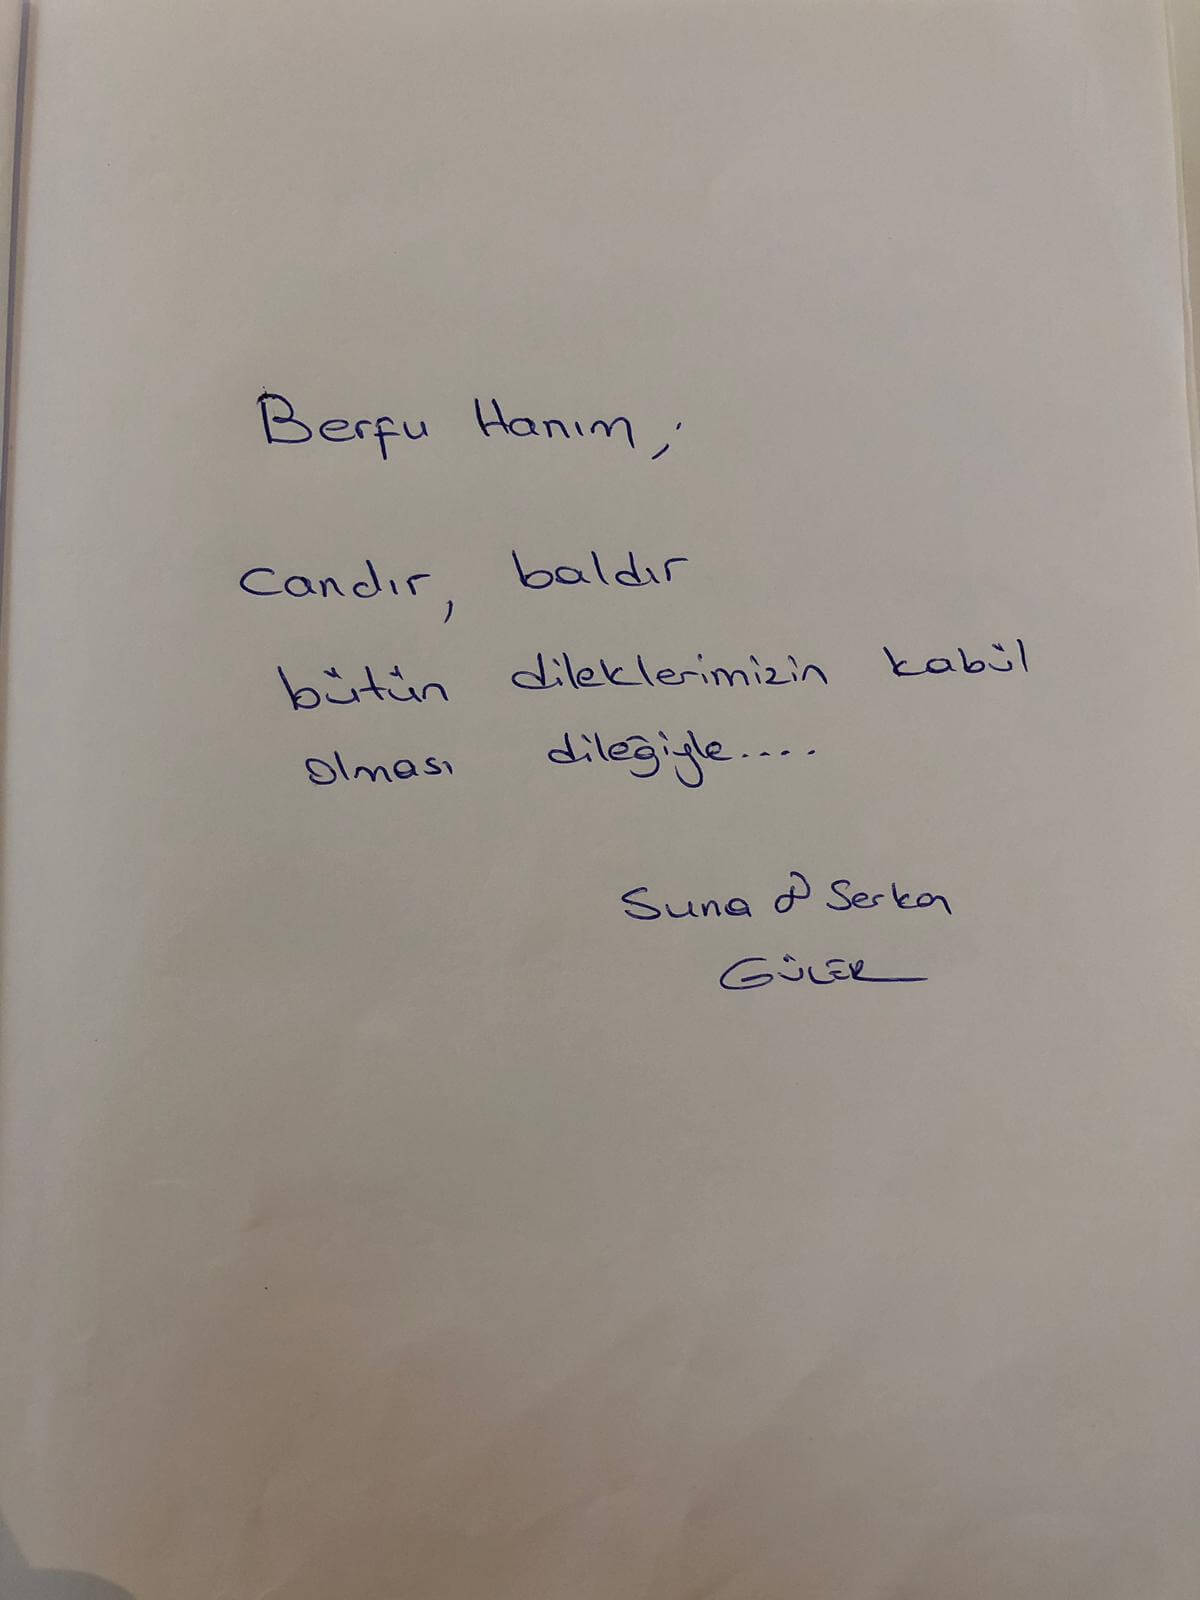 Berfu Hanım;
candır, baldır
bütün dileklerimizin kabül
olması dileğiyle....
Suna & Serkan
GÜLER